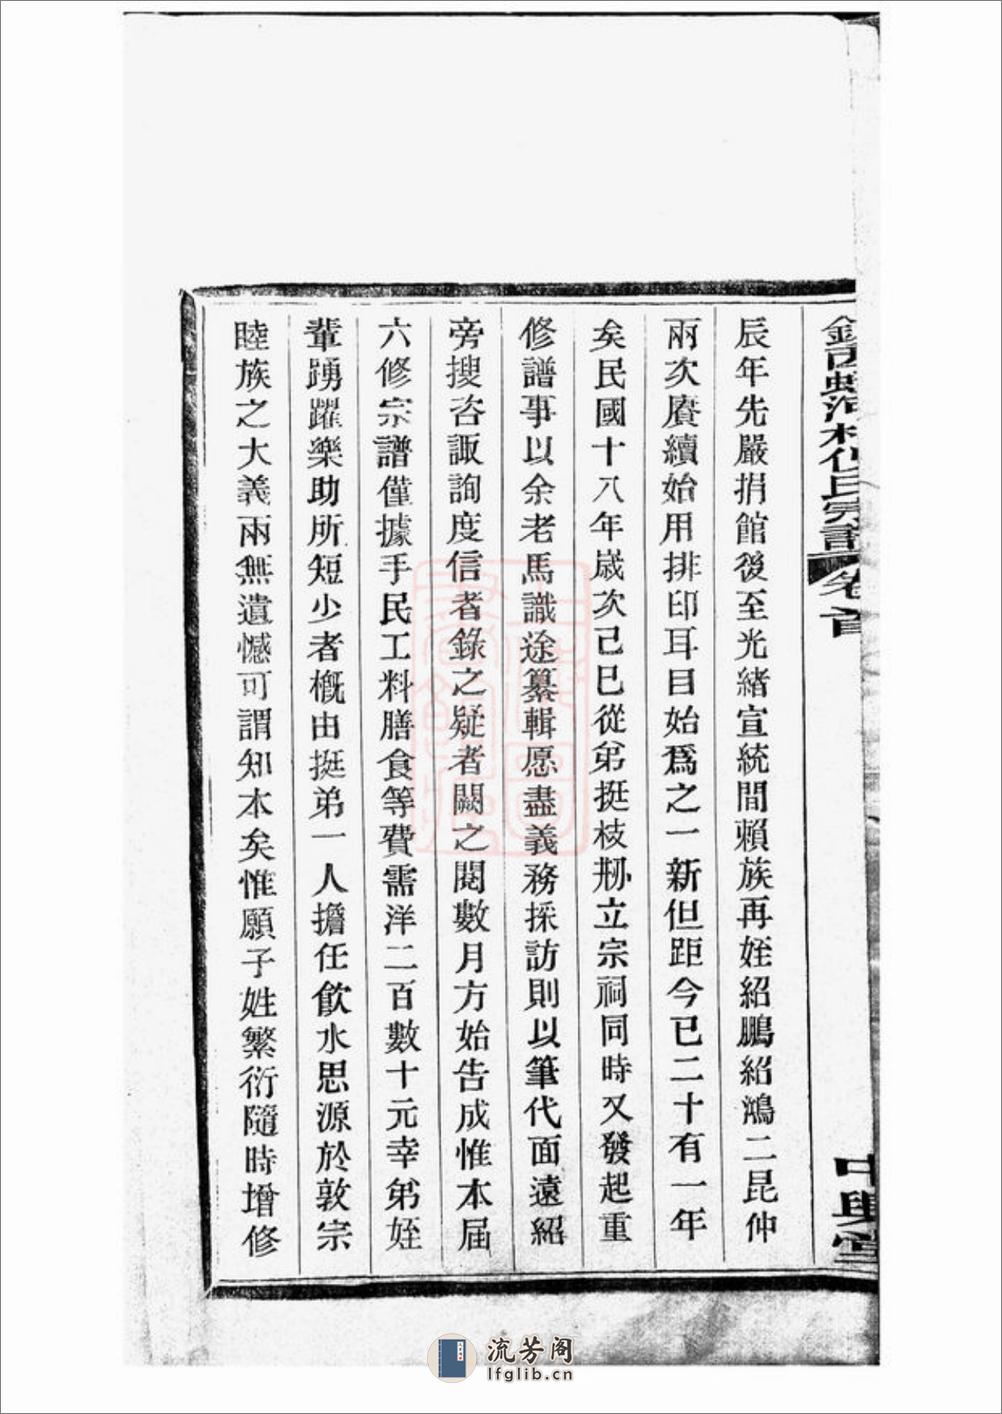 辰年先嚴捐館後至光緒宣統間賴族再姪紹鵬紹鴻二昆仲
兩次賡續始用排印耳目始爲之一新但距今已二十有一年
矣民國十八年歲次己巳從弟挺枝刱立宗祠同時又發起重
修譜事以余老馬識途纂輯愿盡義務採訪則以筆代面遠紹
旁搜咨諏詢度信者錄之疑者闕之閱數月方始告成惟本屆
六修宗譜僅據手民工料膳食等費需洋二百數十元幸弟姪
輩踴躍樂助所短少者槪由挺弟一人擔任飮水思源於敦宗
睦族之大義兩無遺憾可謂知本矣惟願子姓繁衍隨時增修
氏宗譜 卷首
中興堂
流芳阁
lfglib.cn